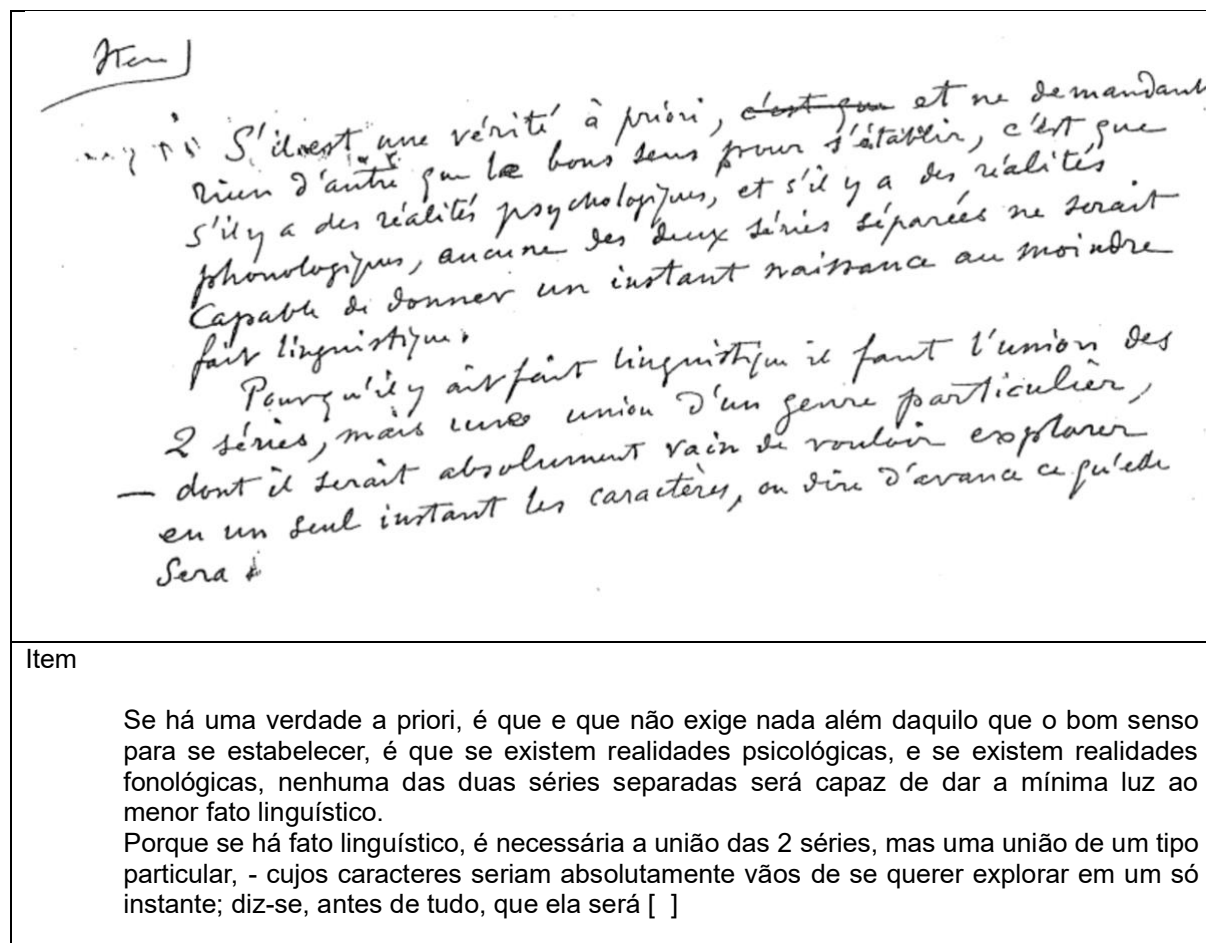 Item
S'il est une vérité à priori, c'est que et ne demandant
rien d'autre que le bons sens pour s'établir, c'est que
s'il y a des réalités psychologiques, et s'il y a des réalités
phonologiques, aucune des deux séries séparées ne serait
capable de donner un instant naissance au moindre
fait linguistique.
Pour qu'il y ait fait linguistique il faut l'union des
2 séries, mais une union d'un genre particulier,
— dont il serait absolument vain de vouloir explorer
en un seul instant les caractères, ou dire d'avance ce qu'elle
sera
Item
Se há uma verdade a priori, é que e que não exige nada além daquilo que o bom senso
para se estabelecer, é que se existem realidades psicológicas, e se existem realidades
fonológicas, nenhuma das duas séries separadas será capaz de dar a mínima luz ao
menor fato linguístico.
Porque se há fato linguístico, é necessária a união das 2 séries, mas uma união de um tipo
particular, - cujos caracteres seriam absolutamente vãos de se querer explorar em um só
instante; diz-se, antes de tudo, que ela será [  ]